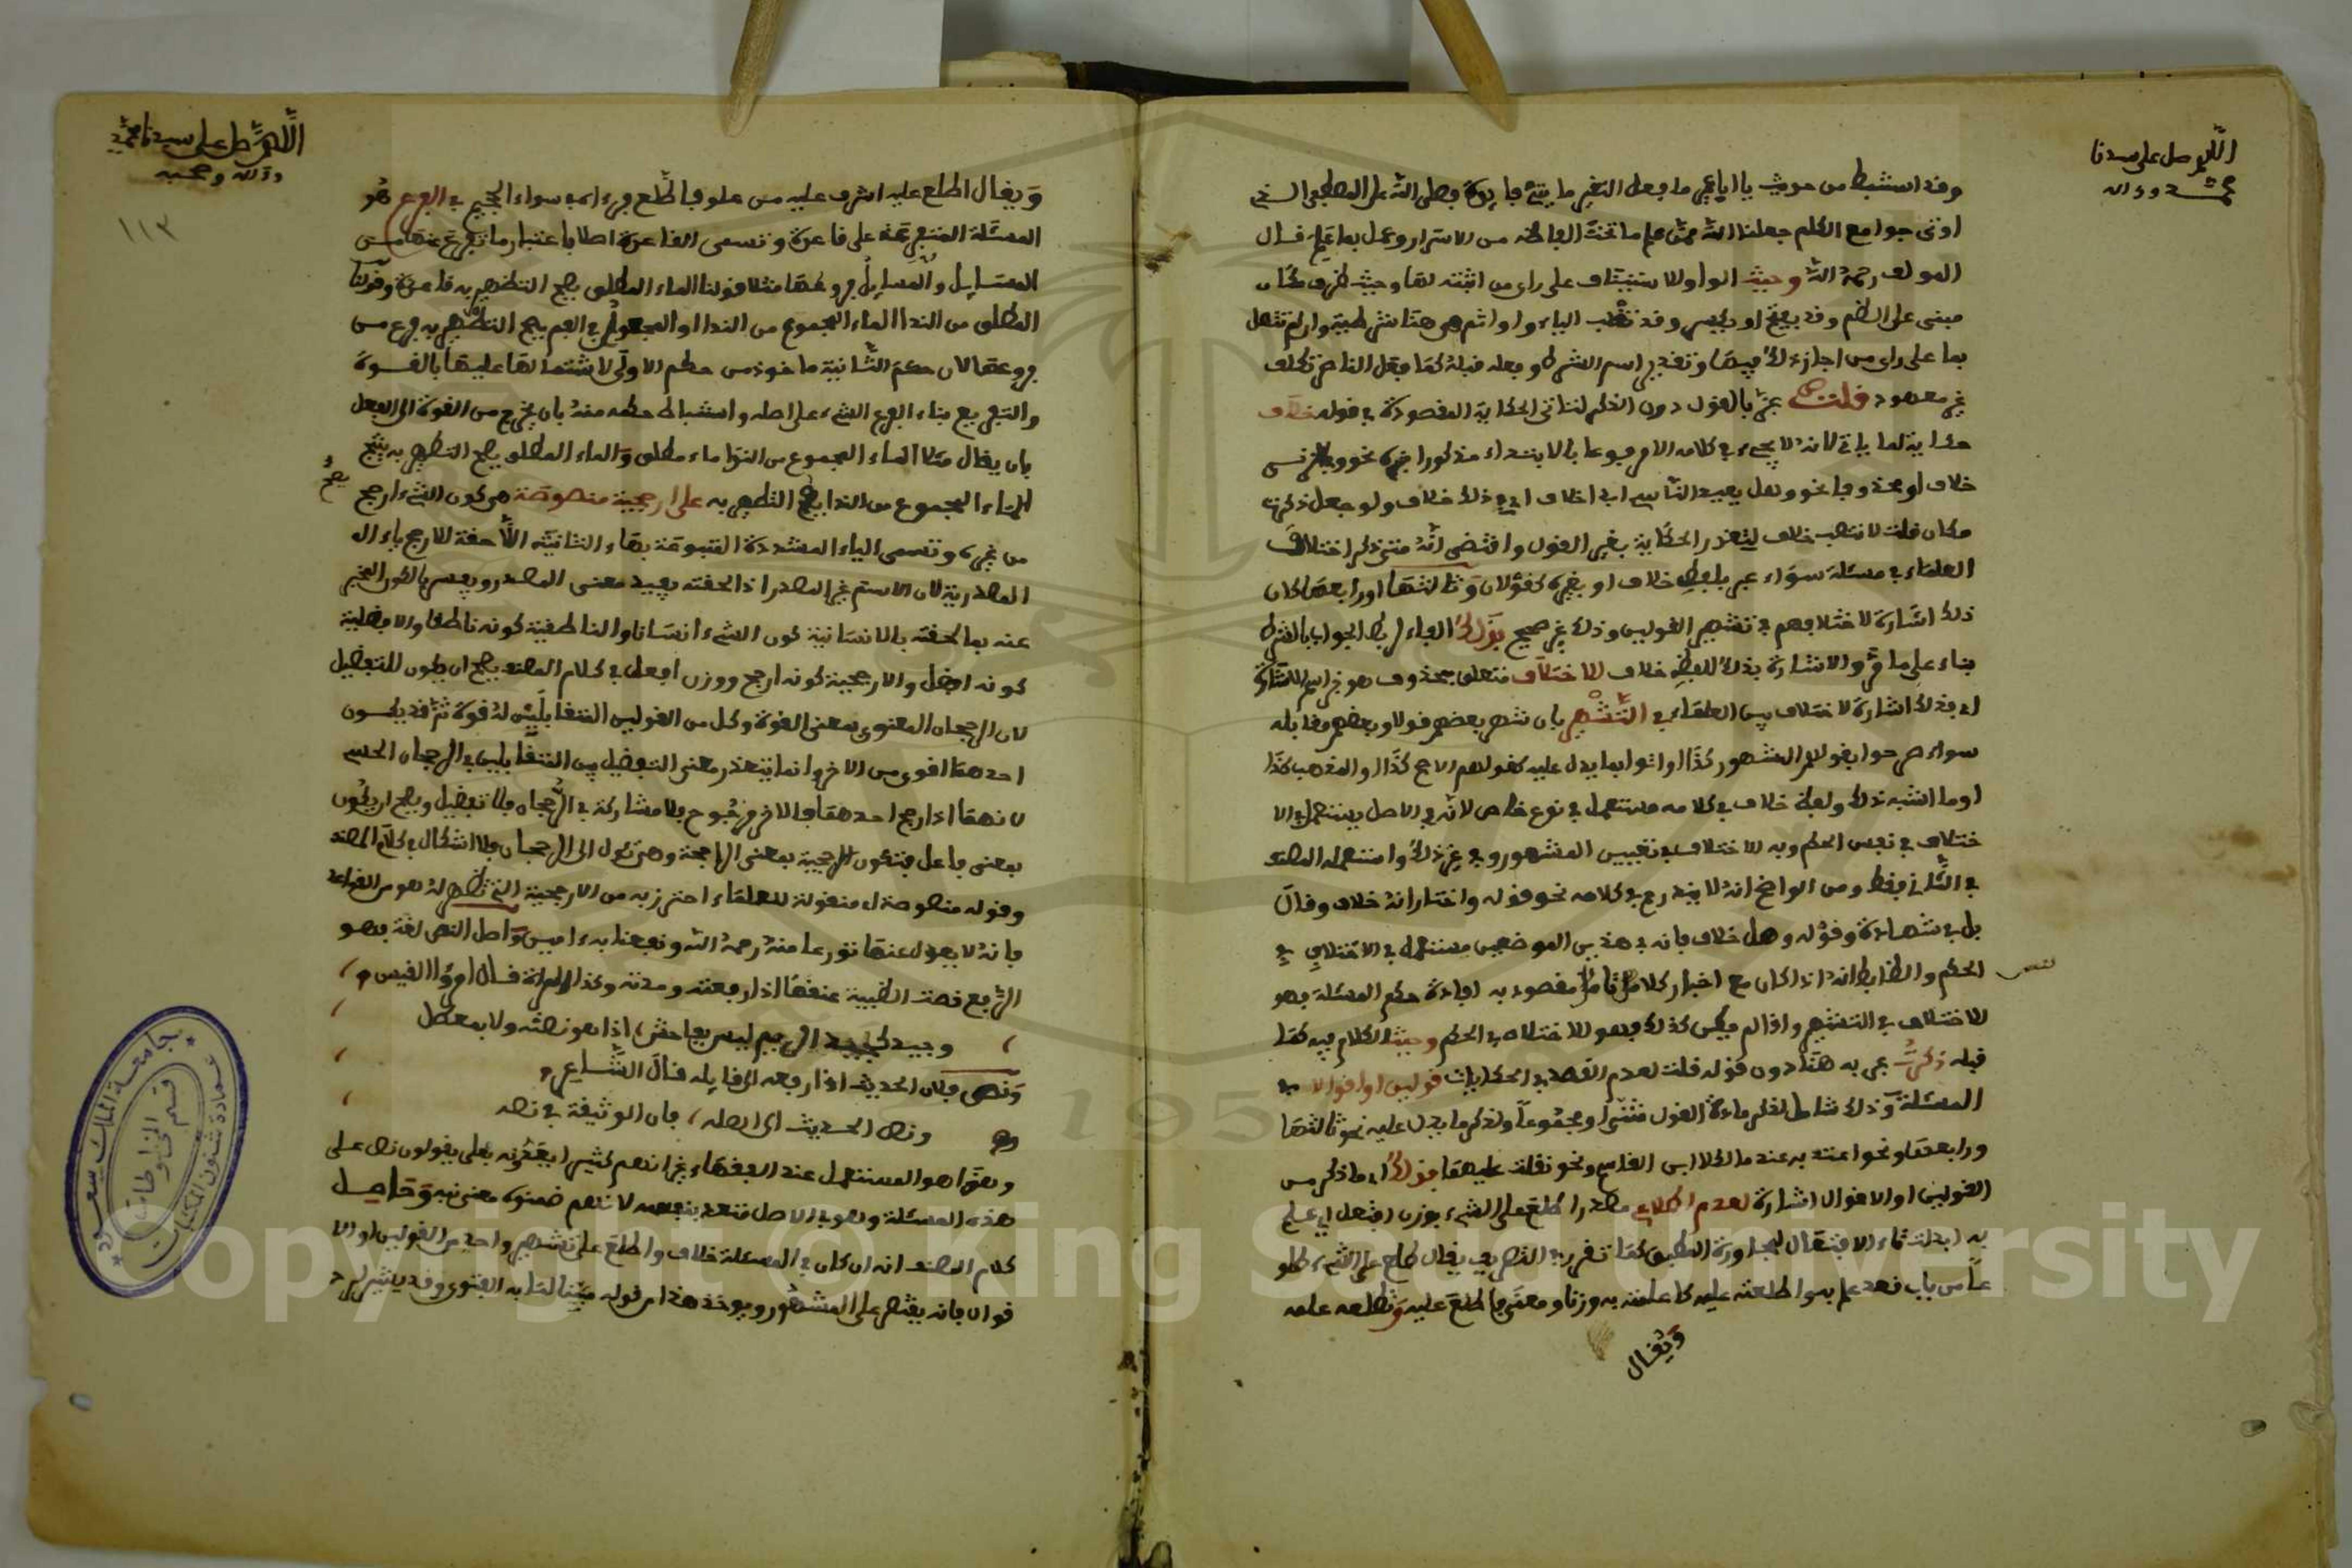 اللهم صل على سيدنا
محمد وءاله
وقد استنبط من حديث يا ابا عمير ما فعل النغير ماية فايدة فصلى الله على المصطفى الذي
اوتي جوامع الكلم جعلنا الله ممن علم ما تحت الفاظه من الاسرار وعمل بما علم قال
المولف رحمه الله وحيث الواو للاستيناف على راي من اثبته لها وحيث ظرف مكان
مبني على الضم وقد يفتح او يكسر وقد تقلب الياء واوا ثم هي هنا شرطية وان لم تتصل
بما على راي من اجاز ذلك فيها وتقدير اسم الشرط وفعله قبله كما فعل الناصر تكلف
غير معهود قلت عبر بالقول دون الذكر لتاتي الحكاية المقصودة في قوله خلاف
حكاية لما ياتي لانه لا يجيء في كلامه الا مرفوعا بالابتداء مذكورا خبره نحو
خلاف او محذوفا نحو وهل يعيد الناسي ابدا خلاف اي في ذلك خلاف ولو جعل ذكرت
مكان قلت لانتصب خلاف لتعذر الحكاية بغير القول واقتضى انه متى ذكر اختلاف
العلماء في مسئلة سواء عبر بلفظ خلاف او بغيره كقولان وثالثها او رابعها كان
ذلك اشارة لاختلافهم في تشهير القولين وذلك غير صحيح فذلك الفاء لربط الجواب بالشرط
بناء على ما مر والاشارة بذلك للفظ خلاف للاختلاف متعلق بمحذوف هو خبر اسم الاشارة
اي فذلك اشارة لاختلاف بين العلماء في التشهير بان شهر بعضهم قولا وبعضهم مقابله
سواء صرحوا بقولهم المشهور كذا او اتوا بما يدل عليه كقولهم الاصح كذا او المذهب كذا
او ما اشبه ذلك ولفظ خلاف في كلامه مستعمل في نوع خاص لانه في الاصل يستعمل في الا
ختلاف في نفس الحكم وبه للاختلاف في تعيين المشهور وفي غير ذلك واستعمله المصنف
في الثاني فقط ومن الواضح انه لا يندرج في كلامه نحو قوله واختار انه خلاف وقال
بل في شهادة وقوله وهل خلاف فانه في هذين الموضعين مستعمل في الاختلاف في
نفس
الحكم والضابط انه اذا كان مع اخبار كلاما تاما مقصود به افادة حكم المسئلة فهو
للاختلاف في التشهير واذا لم يكن كذلك فهو للاختلاف في الحكم وحيث الكلام فيه كما
قبله ذكرت عبر به هنا دون قوله قلت لعدم القصد في الحكايات قولين او اقوالا في
المسئلة وذلك شامل لذكر مادة القول مثنى او مجموعا ولذكر ما يدل عليه نحو ثالثها
ورابعها ونحو اعتد به عند مالك لا ابن القاسم ونحو نقلت عليهما فذلك اي ما ذكر من
القولين او الاقوال اشارة لعدم اطلاعي مصدر اطلع على الشيء بوزن افتعل اي علم
به ابدلت تاء الافتعال لمجاورة المطبق كما تقرر في التصريف يقال طلع على الشيء طلو
عا من باب قعد علم به واطلعته عليه كاعلمته به وزنا ومعنى فاطلع عليه وتطلعه علمه
ويقال
اللهم صل على سيدنا محمد
وءاله وصحبه
١١٣
ويقال اطلع عليه اشرف عليه من علو فاطلع فرءاه في سواء الجحيم في الفرع هو
المسئلة المتفرعة على قاعدة وتسمى القاعدة اصلا باعتبار ما تفرع عنها من
المسايل والمسايل فروعها مثلا قولنا الماء المطلق يصح التطهير به قاعدة وقولنا
المطلق من الندا الماء المجموع من الندا او المجعول في الفم يصح التطهير به فرع من
فروعها لان حكم الثانية ماخوذ من حكم الاولى لاشتمالها عليها بالقوة
والتفريع بناء الفرع الشيء على اصله واستنباط حكمه منه بان يخرج من القوة الى الفعل
بان يقال مثلا الماء المجموع من الندا ماء مطلق والماء المطلق يصح التطهير به ينتج
يصح
الماء المجموع من الندا يصح التطهير به على ارجحية منصوصة هي كون الشيء ارجح
من غيره وتسمى الياء المشددة المتبوعة بهاء التانيث اللاحقة للارجح ياء ال
المصدرية لان الاسم غير المصدر اذا لحقته يفيد معنى المصدر ويفسر بالكون المخبر
عنه بما لحقته بالانسانية كون الشيء انسانا والناطقية كونه ناطقا والافضلية
كونه افضل والارجحية كونه ارجح ووزن افعل في كلام المصنف يصح ان يكون للتفضيل
لان الرجحان المعنوي بمعنى القوة وكل من القولين المتقابلين له قوة ثم قد يكون
احدهما اقوى من الاخر وانما يتعذر معنى التفضيل بين المتقابلين في الرجحان الحسي
لانهما اذا رجح احدهما فالاخر مرجوح فلا مشاركة في الرجحان فلا تفضيل ويصح ان يكون
بمعنى فاعل فتكون الارجحية بمعنى الراجحة وهي تئول الى الرجحان فلا اشكال في كلام المصنف
وقوله منصوصة اي منقولة للعلماء احترز به من الارجحية التي تظهر له هو من القواعد
فانه لا يعول عنها تورعا منه رحمه الله ونفعنا به ءامين واصل النص لغة فهو
الرفع نصت الظبية عنقها اذا رفعته ومدته وكذا المراة قال امرؤ القيس
وجيد كجيد الريم ليس بفاحش، اذا هو نصته ولا بمعطل
ونص فلان الحديث اذا رفعه الى قايله قال الشاعر
ونص الحديث الى اهله، فان الوثيقة في نصه
وهذا هو المستعمل عند الفقهاء غير انهم كثيرا يعدونه بعلى يقولون نص على
هذه المسئلة وهو في الاصل متعد بنفسه لانهم ضمنوه معنى نبه وحاصل
كلام المصنف انه ان كان في المسئلة خلاف واطلع على تشهير واحد من القولين او الا
قوال فانه يقتصر على المشهور ويوخذ هذا من قوله مبينا لما به الفتوى وقد يشير له
جامعة الملك سعود
عمادة شئون المكتبات
قسم المخطوطات
Copyright © King Saud University
195